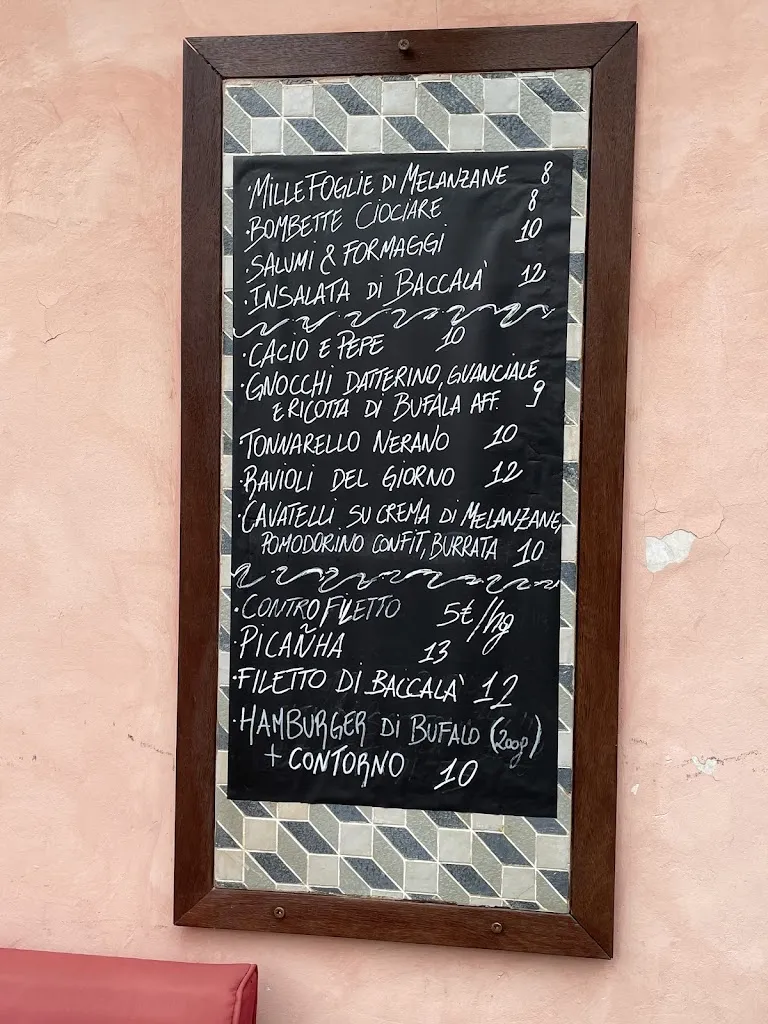 ·MILLEFOGLIE DI MELANZANE 8
·BOMBETTE CIOCIARE 8
·SALUMI & FORMAGGI 10
·INSALATA DI BACCALA' 12
·CACIO E PEPE 10
·GNOCCHI DATTERINO, GUANCIALE
E RICOTTA DI BUFALA AFF. 9
·TONNARELLO NERANO 10
·RAVIOLI DEL GIORNO 12
·CAVATELLI SU CREMA DI MELANZANE,
POMODORINO CONFIT, BURRATA 10
·CONTROFILETTO 5€/hg
·PICAÑHA 13
·FILETTO DI BACCALA' 12
·HAMBURGER DI BUFALO (200g)
+ CONTORNO 10